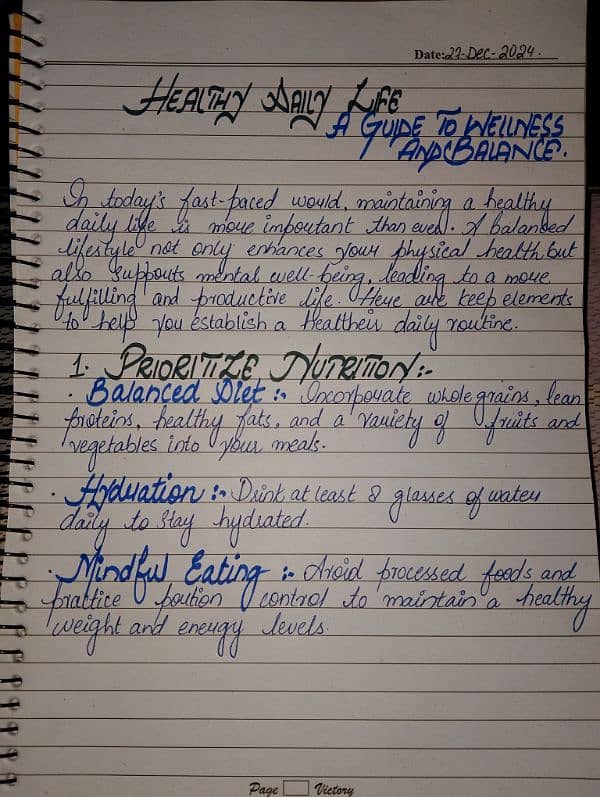 Date: 27-Dec-2024.
HEALTHY DAILY LIFE
A GUIDE TO WELLNESS
AND BALANCE.
In today's fast-paced would, maintaining a healthy
daily life is more important than ever. A balanced
lifestyle not only enhances your physical health, but
also supports mental well-being, leading to a more
fulfilling and productive life. Here are keep elements
to help you establish a healtheir daily routine.
1. PRIORITIZE NUTRITION:-
· Balanced Diet :- Incorporate whole grains, lean
proteins, healthy fats, and a variety of fruits and
vegetables into your meals.
· Hydration :- Drink at least 8 glasses of water
daily to stay hydrated.
· Mindful Eating :- Avoid processed foods and
practice portion control to maintain a healthy
weight and energy levels.
Page Victory